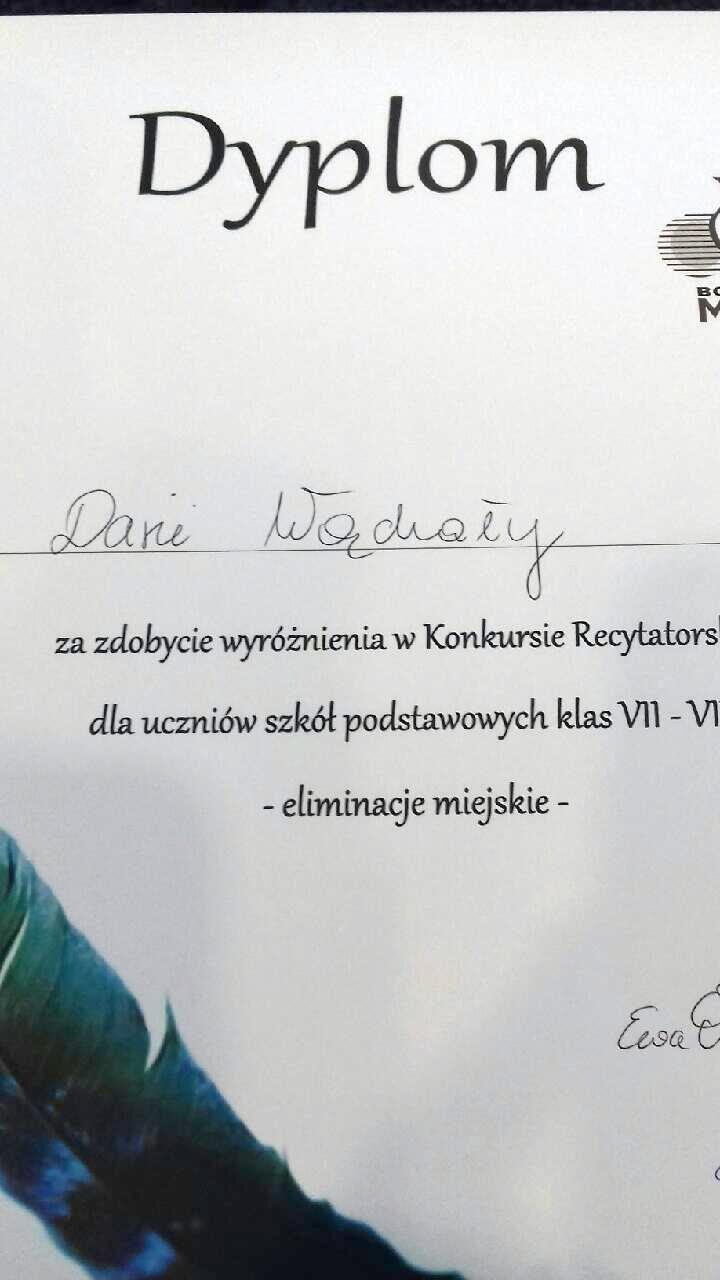 Dyplom
BO
M
Darii Wądrzały
za zdobycie wyróżnienia w Konkursie Recytators
dla uczniów szkół podstawowych klas VII - VI
- eliminacje miejskie -
Ewa